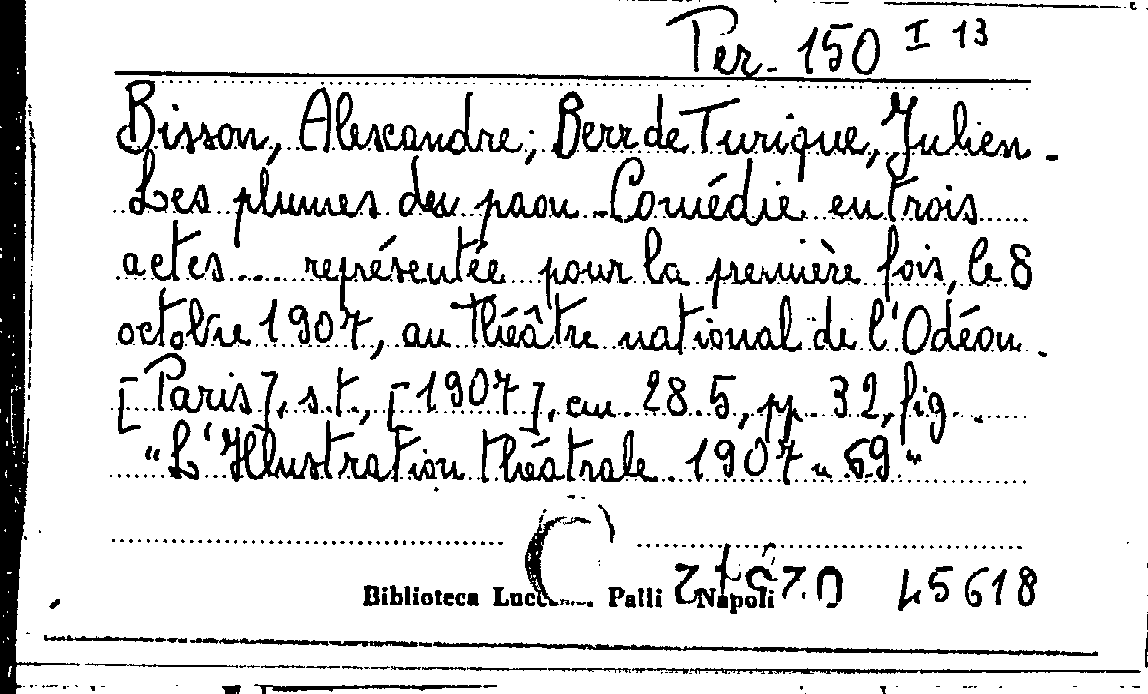 Per. 150 I 13
Bisson, Alexandre; Berr de Turique, Julien.
Les plumes du paon. Comédie en trois
actes... représentée pour la première fois, le 8
octobre 1907, au théâtre national de l'Odéon.
[Paris], s.t., [1907], cm. 28.5, pp. 32, fig.
"L'Illustration théâtrale. 1907 n. 69"
Biblioteca Palli Napoli 45618